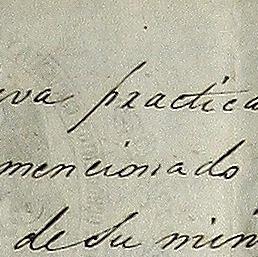 eva practica
mencionado
de su min